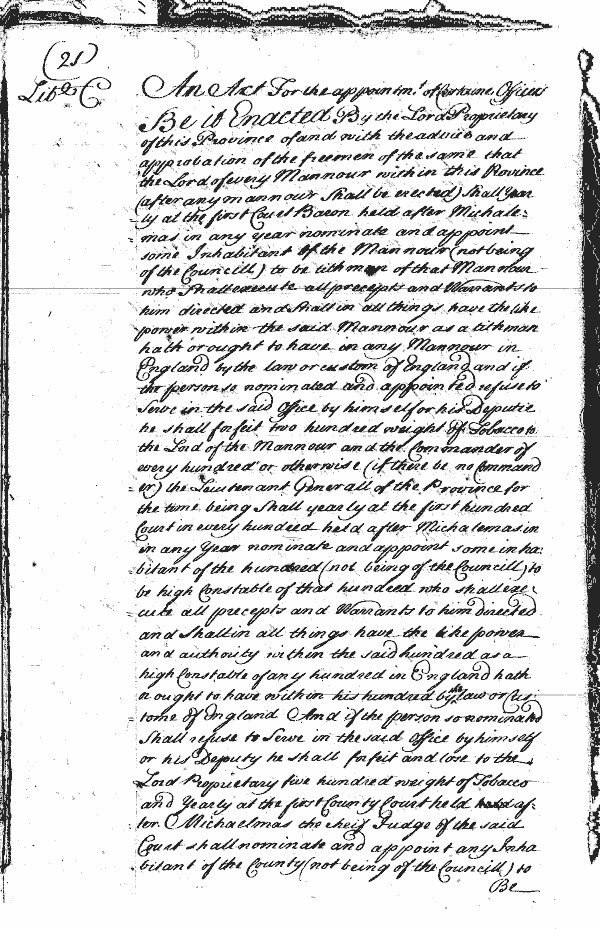 (21)
Lib.e C.
An Act For the appointm.t of Certaine Officers
Be it Enacted By the Lord Proprietary
of this Province of and with the advice and
approbation of the freemen of the same that
the Lord of every Mannour within this Province
(after any mannour Shall be erected) Shall Year
ly at the first Court Baron held after Michale-
mas in any year nominate and appoint
some Inhabitant of the Mannour (not being
of the Councill) to be tithman of that Mannour
who Shall execute all precepts and Warrants to
him directed and shall in all things have the like
power within the said Mannour as a tithman
hath or ought to have in any Mannour in
England by the law or custom of England and if
the person so nominated and appointed refuse to
Serve in the said Office by himself or his Deputie
he shall forfeit two hundred weight of Tobacco to
the Lord of the Mannour and the Commander of
every hundred or otherwise (if there be no Command
er) the Lieutenant Generall of the Province for
the time being Shall yearly at the first hundred
Court in every hundred held after Michalemas in
in any Year nominate and appoint some inha:
bitant of the hundred (not being of the Councill) to
be high Constable of that hundred who shall exe:
cute all precepts and Warrants to him directed
and Shall in all things have the like power
and authority within the said hundred as a
high Constable of any hundred in England hath
or ought to have within his hundred by the law or Cus
tome of England And if the person so nominated
Shall refuse to Serve in the said Office by himself
or his Deputy he shall forfeit and lose to the
Lord Proprietary five hundred weight of Tobacco
and Yearly at the first County Court held af-
ter Michaelmas the cheif Judge of the said
Court shall nominate and appoint any Inha
bitant of the County (not being of the Councill) to
Be